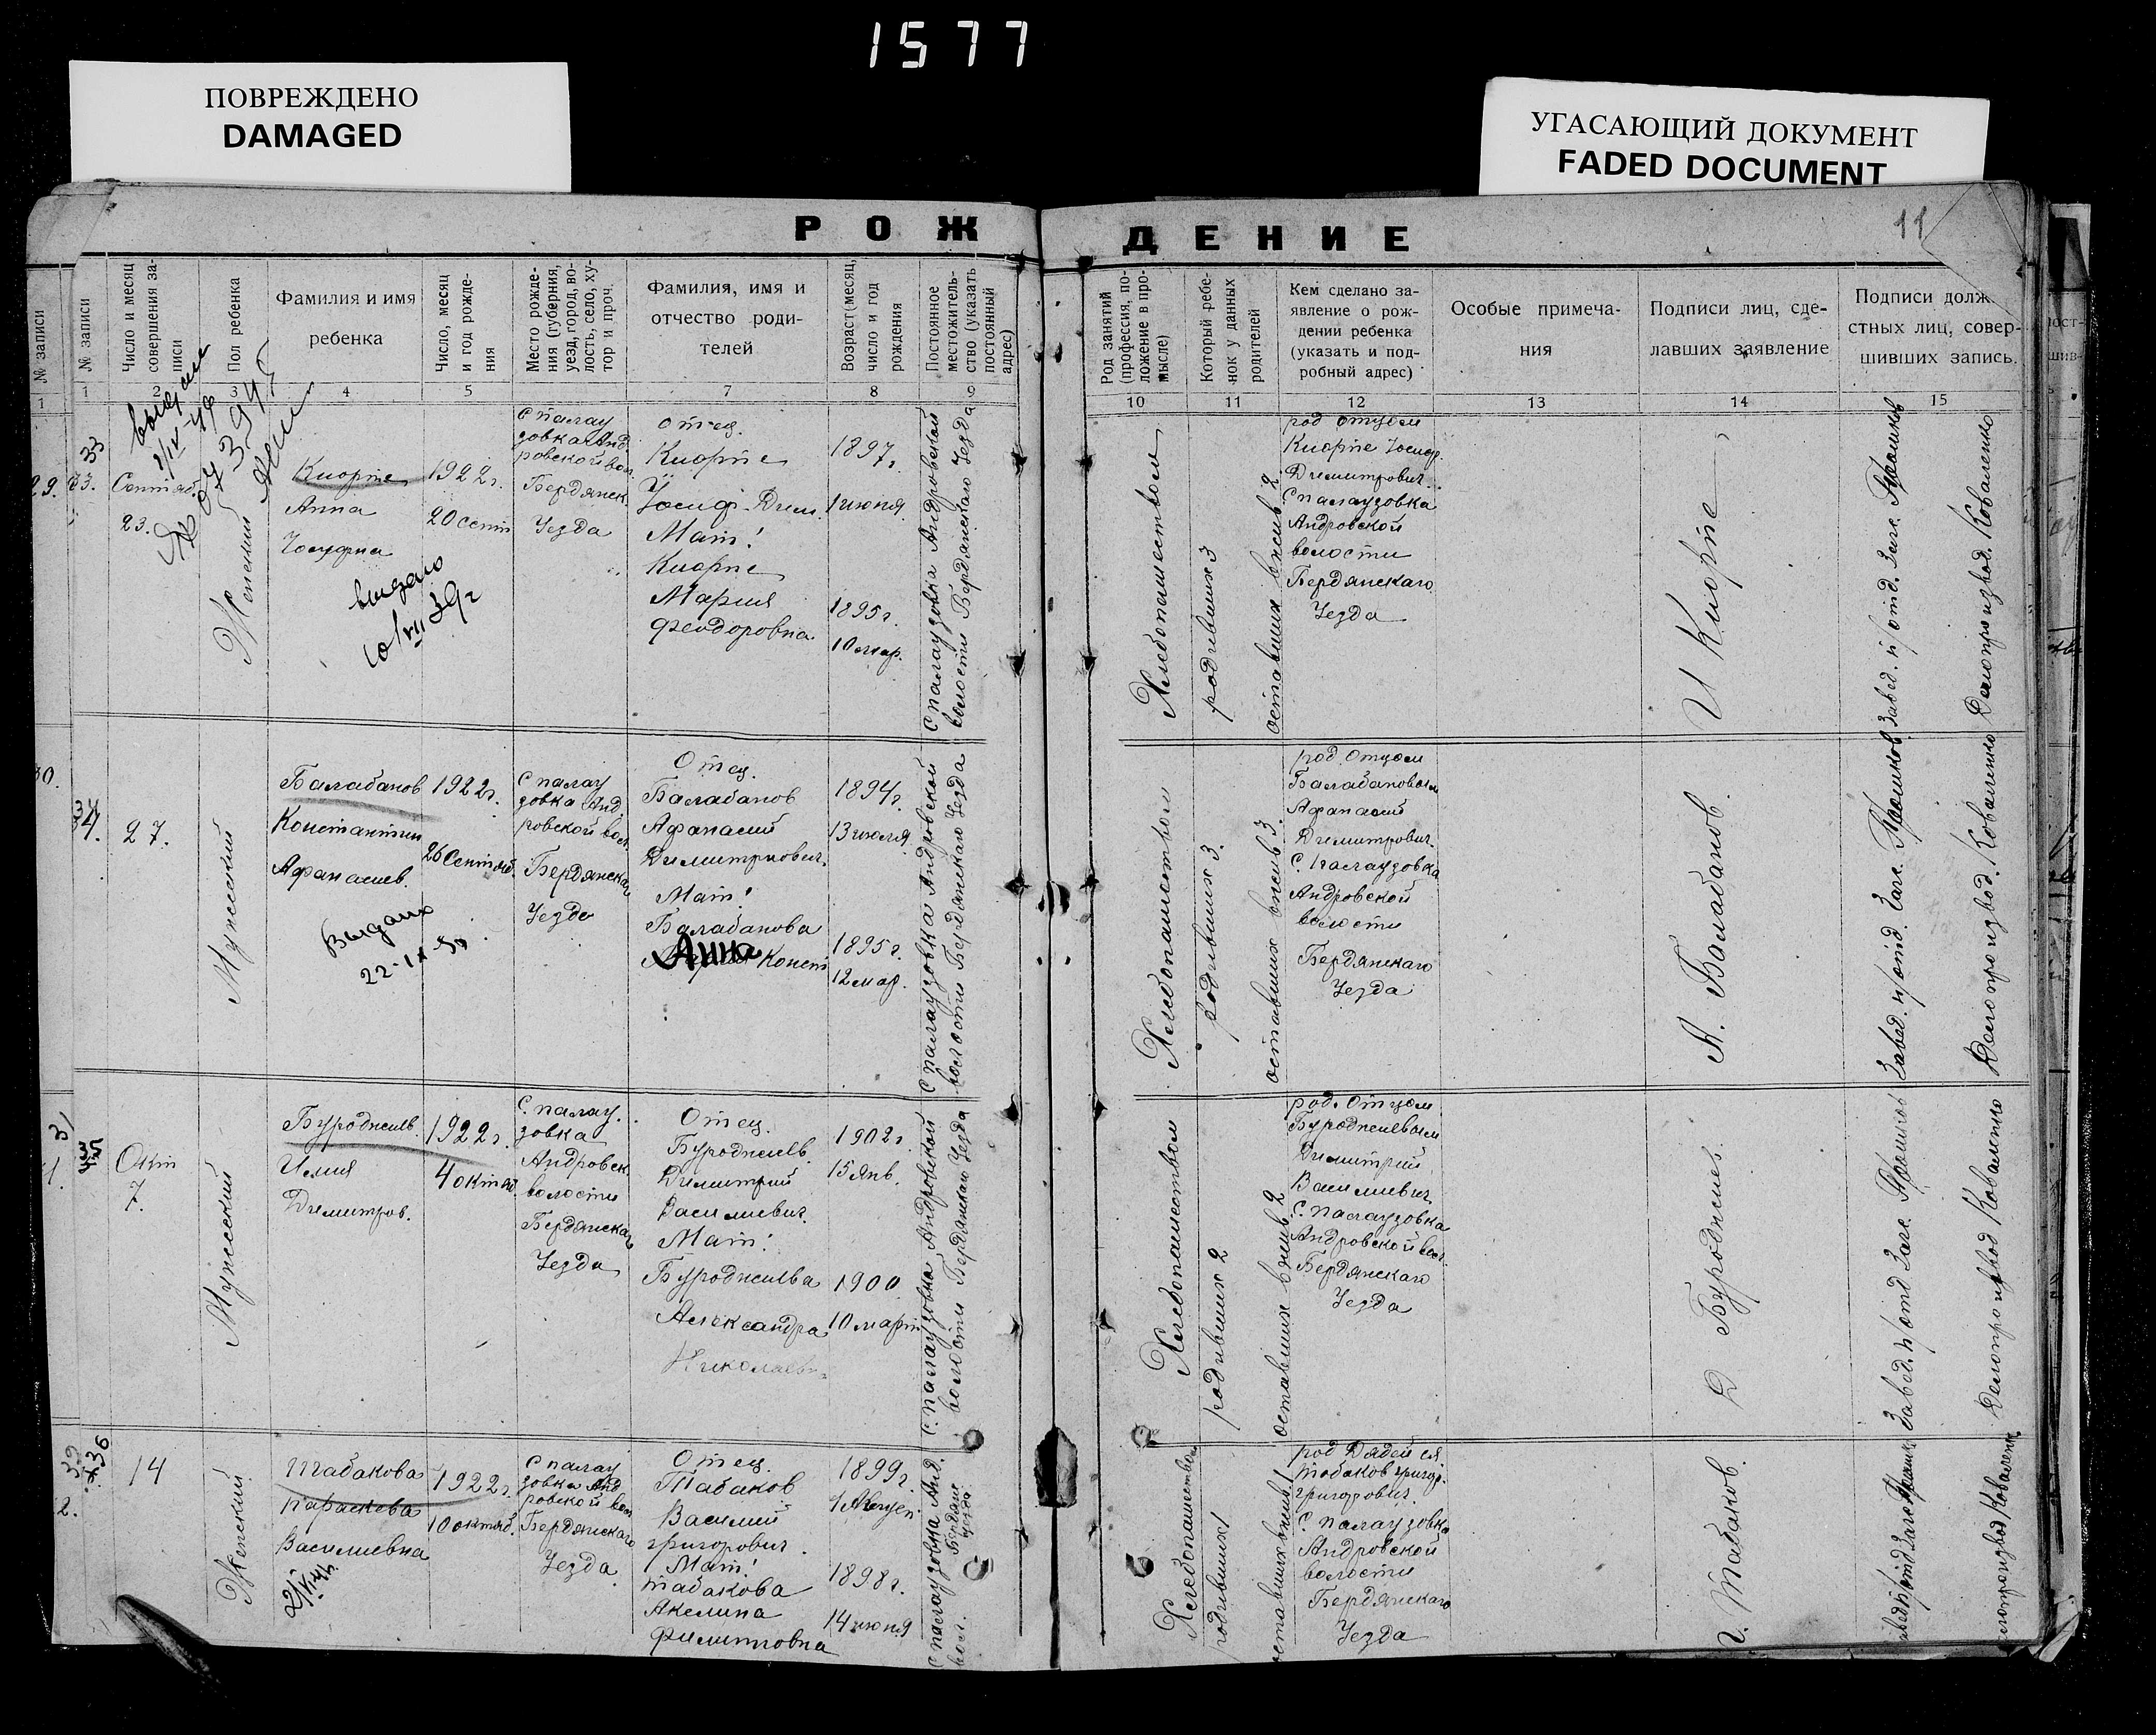 1577
ПОВРЕЖДЕНО
DAMAGED
УГАСАЮЩИЙ ДОКУМЕНТ
FADED DOCUMENT
РОЖДЕНИЕ
11
№ записи
№ записи
Число и месяц
совершения за-
писи
Пол ребенка
Фамилия и имя
ребенка
Число, месяц
и год рожде-
ния
Место рожде-
ния (губерния,
уезд, город, во-
лость, село, ху-
тор и проч.
Фамилия, имя и
отчество роди-
телей
Возраст (месяц,
число и год
рождения
Постоянное
местожитель-
ство (указать
постоянный
адрес)
Род занятий
(профессия, по-
ложение в про-
мысле)
Который ребе-
нок у данных
родителей
Кем сделано за-
явление о рож-
дении ребенка
(указать и под-
робный адрес)
Особые примеча-
ния
Подписи лиц, сде-
лавших заявление
Подписи долж
стных лиц, совер-
шивших запись.
1
1
2
3
4
5
6
7
8
9
10
11
12
13
14
15
29.
33
33.
Сентяб.
23.
Женский
Киорпе
Анна
Иосифна
выдано
10/VII 39г
1922г.
20 сент
с палау
зовка Анд
ровской вол.
Бердянск.
Уезда
отец.
Киорпе
Иосиф Дим.
Мать!
Киорпе
Мария
Феодоровна
1897г.
1 июня.
1895г.
10 мар.
с палаузовка Андровской
волости Бердянскаго Уезда
Хлебопашеством
родившихся 3
оставшихся в жив 2
род отцом
Киорпе Иосиф.
Димитрович.
с палаузовка
Андровской
волости
Бердянскаго
Уезда
И Киорпе
Завед. п/отд. Загс.
Делопроизвод. Коваленко
30.
34.
27.
Мужеский
Балабанов
Константин
Афанасиев.
Выдано
22-IX-50
1922г.
26 Сентяб.
с палау
зовка Анд
ровской вол.
Бердянскаго
Уезда
Отец.
Балабанов
Афанасий
Димитриович.
Мать!
Балабанова
Анна Конст
1894г.
13 июля
1895г.
12 мар.
с палаузовка Андровской
волости Бердянскаго Уезда
Хлебопашеством
родившихся 3.
оставшихся в жив 3.
род. отцом
Балабановым
Афанасий
Димитрович.
с. палаузовка
Андровской
волости
Бердянскаго
Уезда
А. Балабанов.
Завед. п/отд. Загс.
Делопроизвод. Коваленко
35
Окт
7.
Мужеский
Буроджиев.
Илия
Димитров.
1922г.
4 октяб.
с. палау.
зовка
Андровск.
волости
Бердянскаго
Уезда
Отец.
Буроджиев.
Димитрий
Василиевич.
Мать!
Буроджиева
Александра
Николаевн.
1902г
15 Янв.
1900
10 март
с. палаузовка Андровской
волости Бердянскаго Уезда
Хлебопашеством
родившихся 2
оставшихся в жив 2
род. отцом
Буроджиевым
Димитрий
Василиевич
с. палаузовка
Андровской вол.
Бердянскаго
Уезда
Д Буроджиев.
Завед. п/отд Загс.
Делопроизвод Коваленко
36
14
Женский
Табакова
параскева
Василиевна
1922г.
10 октяб.
с палау
зовка Анд
ровской вол
Бердянскаго
Уезда
Отец.
Табаков
Василий
григорович.
Мать!
табакова
Акелина
Филипповна
1899г.
1898г.
14 июня
с палаузовка Анд.
вол. Бердянс
уезда
Хлебопашеством
родившихся 1
оставшихся в жив. 1
род Дядей ея
табаков григор.
григорович.
с. палаузовка
Андровской
волости
Бердянскаго
Уезда
Г. Табаков.
Завед п/отд Загс
Делопроизвод Коваленк